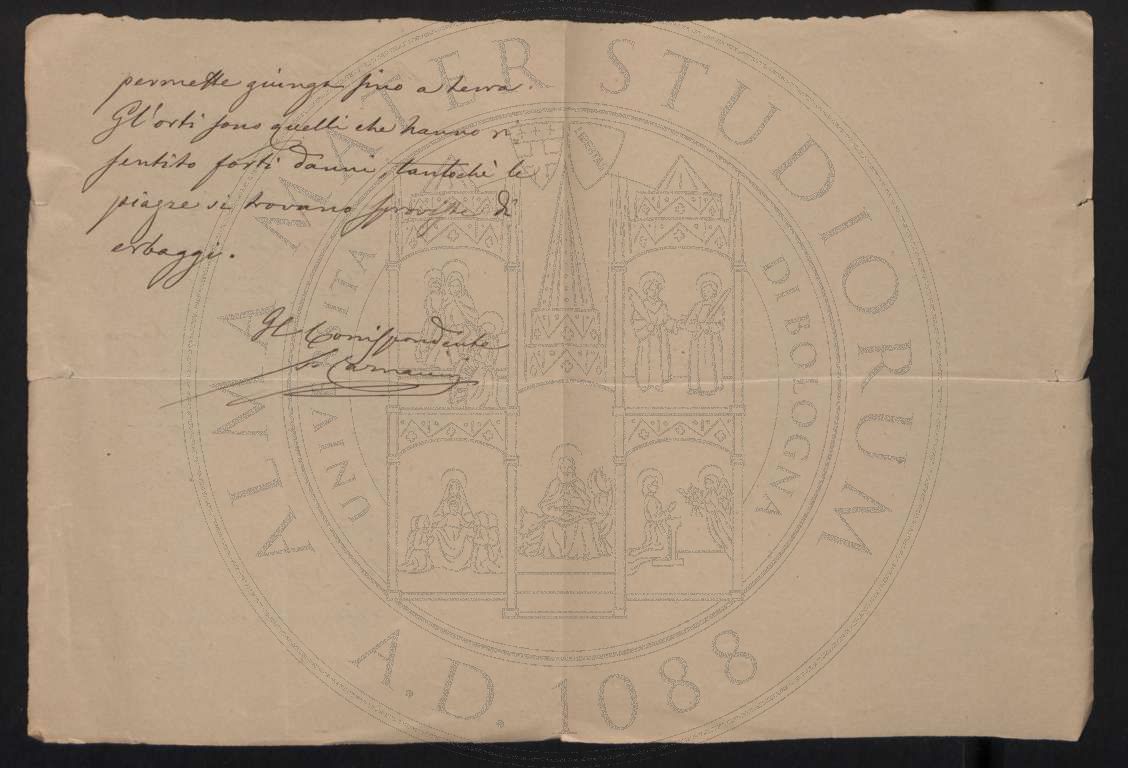 permette giunga sino a terra.
Gl'orti sono quelli che hanno ri
sentito forti danni, tantochè le
piazze si trovano sproviste di
erbaggi.
Il Corrispondente
ALMA MATER STUDIORUM
UNIVERSITA DI BOLOGNA
A.D. 1088